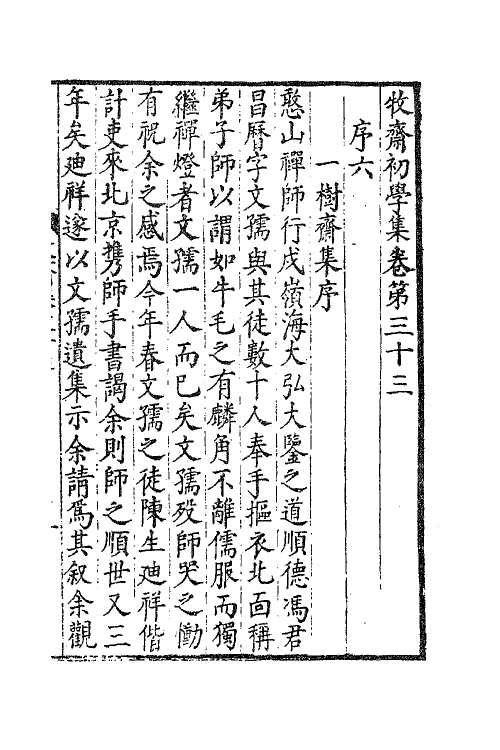 牧齋初學集卷第三十三
序六
一樹齋集序
憨山禪師行戍嶺海大弘大鑒之道順德馮君
昌曆字文孺與其徒數十人奉手摳衣北面稱
弟子師以謂如牛毛之有麟角不離儒服而獨
繼禪燈者文孺一人而已矣文孺歿師哭之慟
有祝余之感焉今年春文孺之徒陳生廸祥偕
計吏來北京攜師手書謁余則師之順世又三
年矣廸祥遂以文孺遺集示余請爲其叙余觀